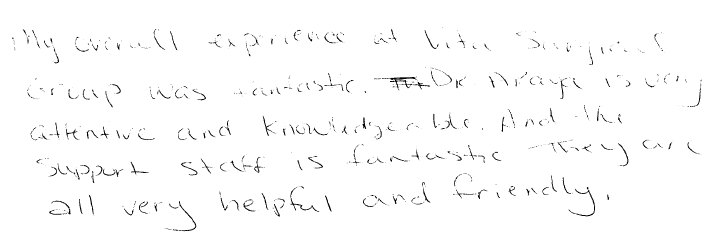 My overall experience at Vita Surgical
Group was fantastic. Dr Araya is very
attentive and knowledgeable. And the
support staff is fantastic They are
all very helpful and friendly.